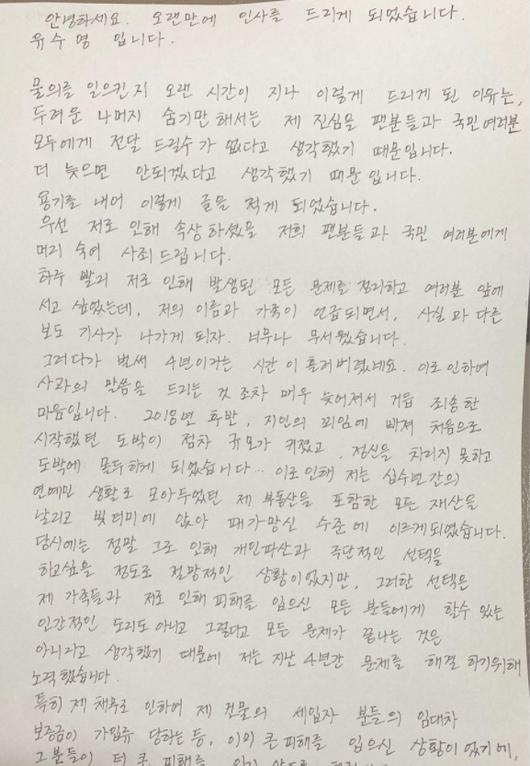 안녕하세요. 오랜만에 인사를 드리게 되었습니다.
유수영 입니다.
물의를 일으킨지 오랜 시간이 지나 이렇게 드리게 된 이유는,
두려운 나머지 숨기만 해서는 제 진심을 팬분들과 국민여러분
모두에게 전달 드릴수가 없다고 생각했기 때문입니다.
더 늦으면 안되겠다고 생각했기 때문 입니다.
용기를 내어 이렇게 글을 적게 되었습니다.
우선 저로 인해 속상하셨을 저희 팬분들과 국민 여러분에게
머리 숙여 사죄드립니다.
하루 빨리 저로 인해 발생된 모든 문제를 정리하고 여러분 앞에
서고 싶었는데, 저의 이름과 가족이 언급되면서, 사실과 다른
보도 기사가 나가게 되자. 너무나 무서웠습니다.
그러다가 벌써 4년이라는 시간이 흘러버렸네요. 이로 인하여
사과의 말씀을 드리는 것 조차 매우 늦어져서 거듭 죄송한
마음입니다. 2018년 후반, 지인의 꾀임에 빠져 처음으로
시작했던 도박이 점차 규모가 커졌고, 정신을 차리지 못하고
도박에 몰두하게 되었습니다.. 이로 인해 저는 십수년간의
연예인 생활로 모아두었던 제 부동산을 포함한 모든 재산을
날리고 빚더미에 앉아 패가망신 수준에 이르게되었습니다.
당시에는 정말 그로 인해 개인파산과 극단적인 선택을
하고싶을 정도로 절망적인 상황이었지만, 그러한 선택은
제 가족들과 저로 인해 피해를 입으신 모든 분들에게 할수 있는
인간적인 도리도 아니고 그렇다고 모든 문제가 끝나는 것은
아니라고 생각했기 때문에 저는 지난 4년간 문제를 해결 하기위해
노력했습니다.
특히 제 채무로 인하여 제 건물의 세입자 분들의 임대차
보증금이 가압류 당하는등, 이외 큰피해를 입으신 상황이었기에,
그분들이 더 큰 피해를